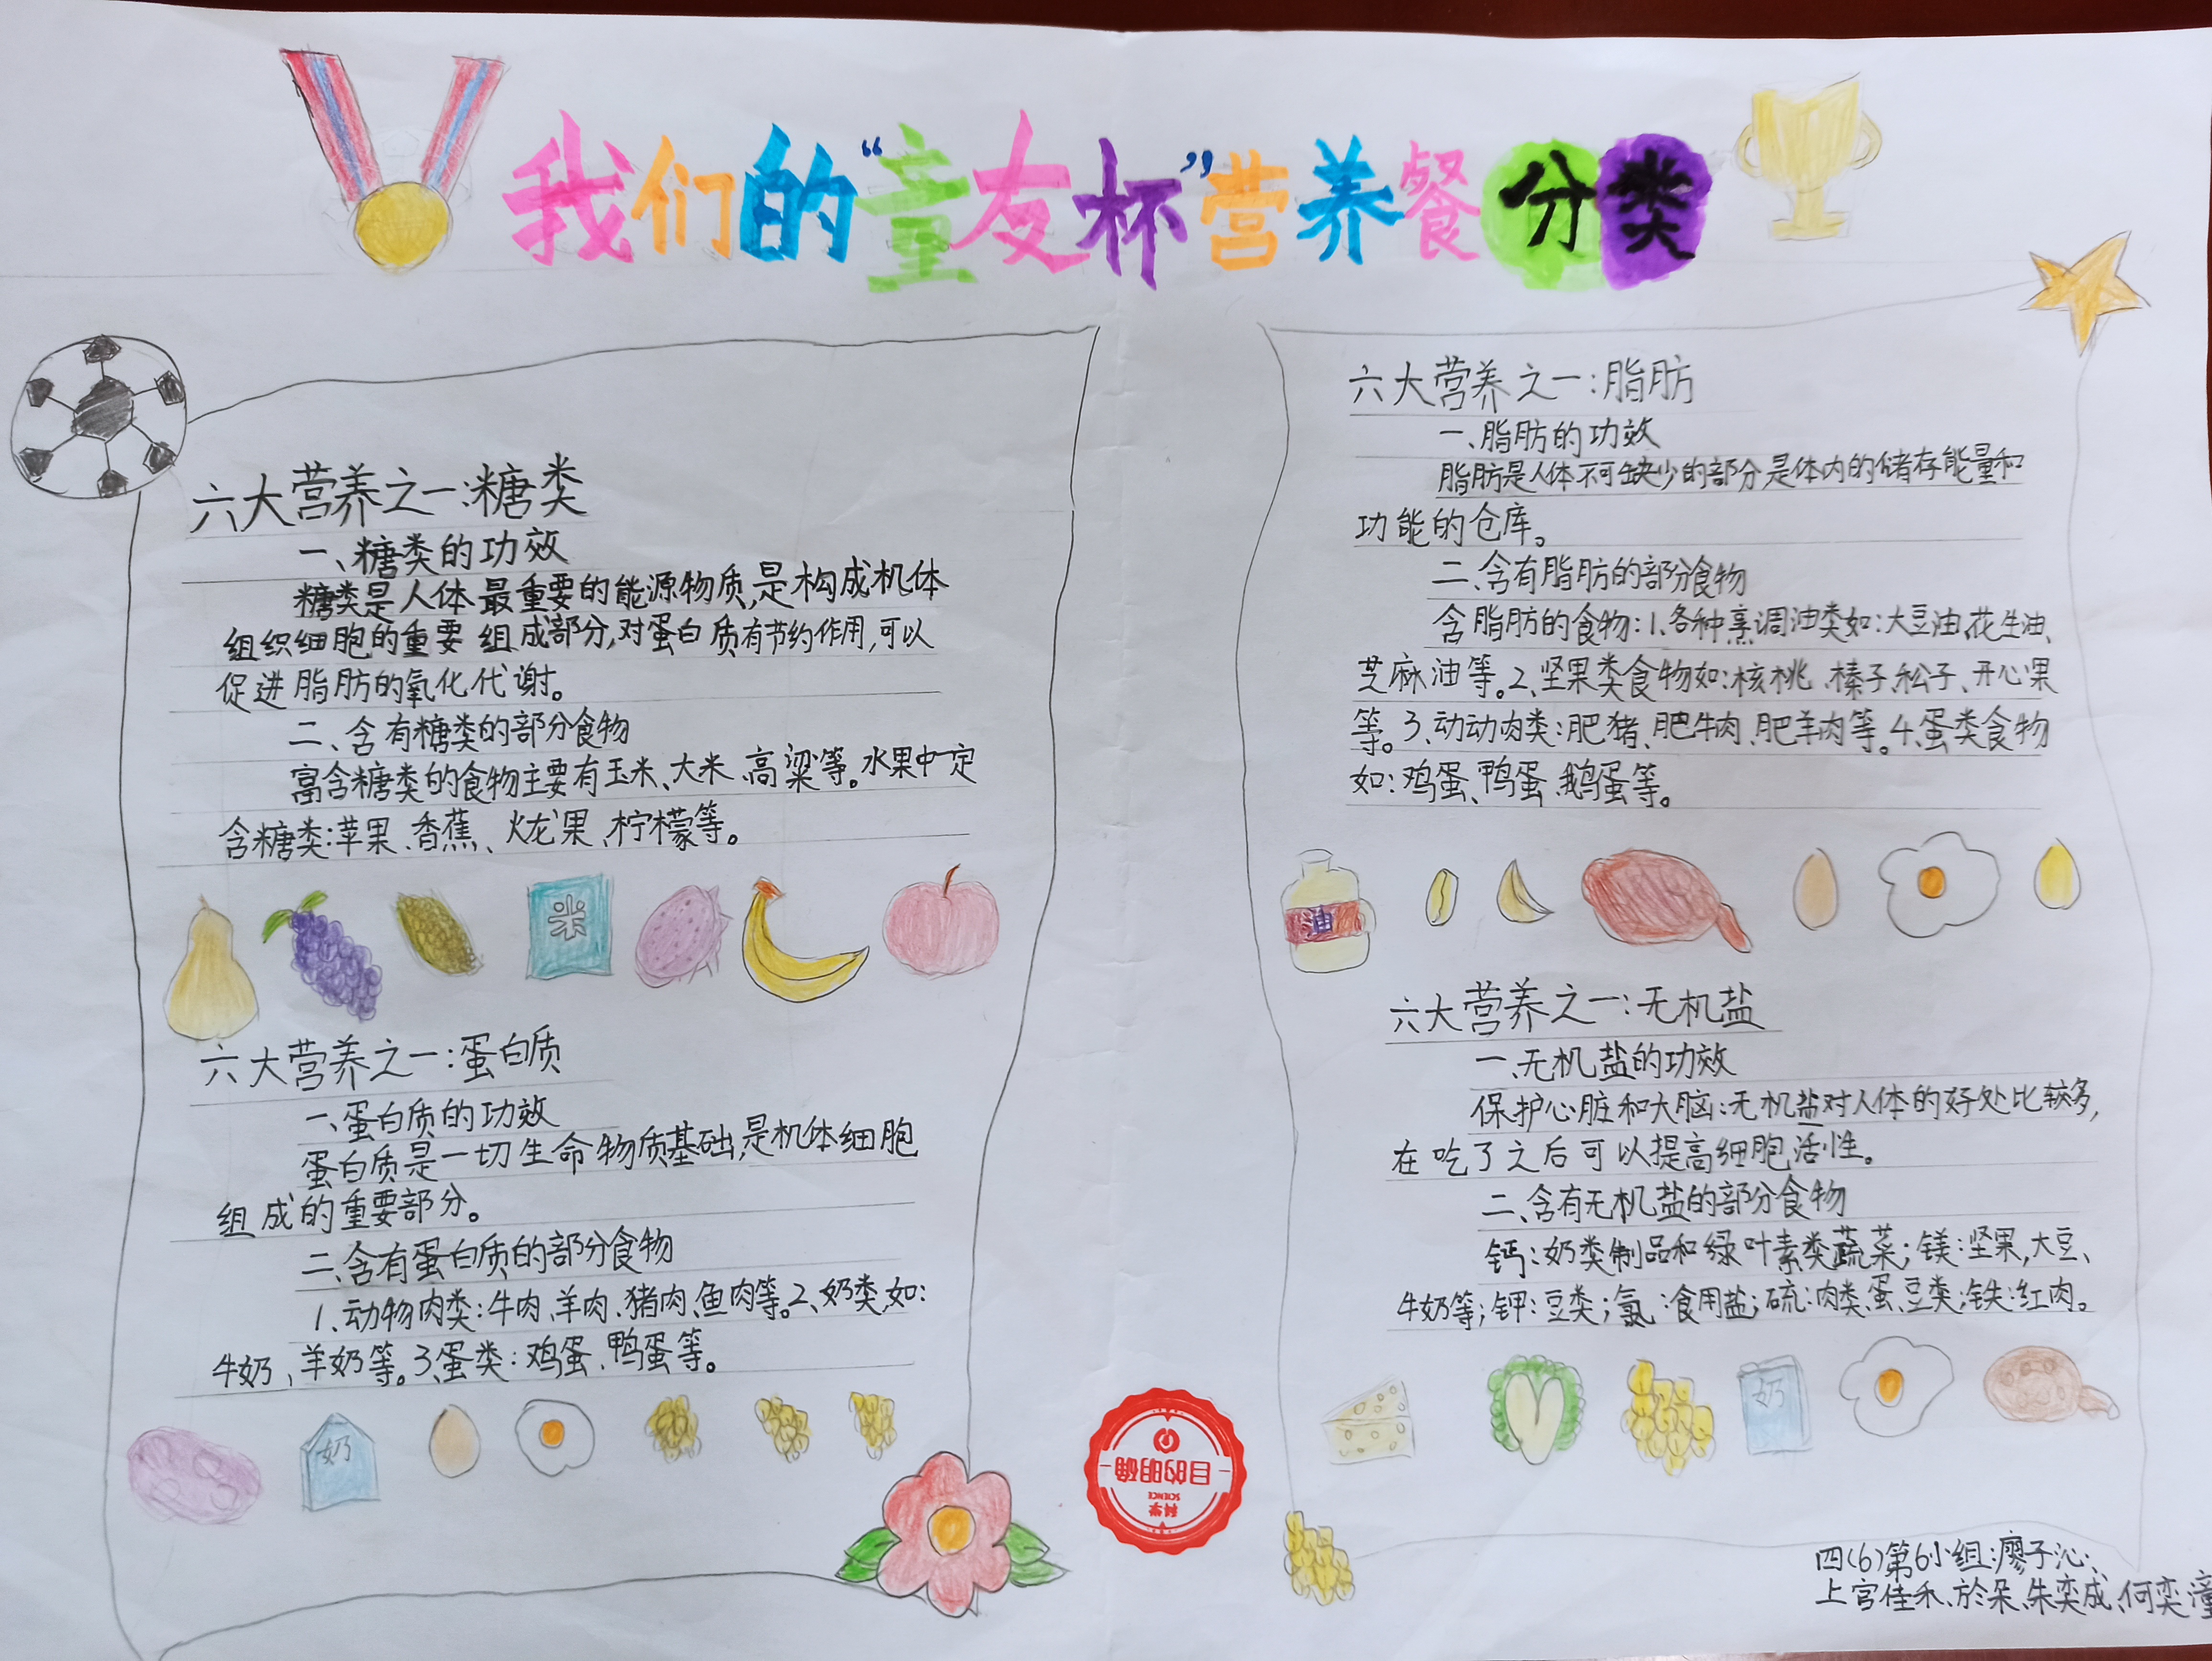 我们的“童友杯”营养餐分类
六大营养之一:糖类
一、糖类的功效
糖类是人体最重要的能源物质,是构成机体
组织细胞的重要组成部分,对蛋白质有节约作用,可以
促进脂肪的氧化代谢。
二、含有糖类的部分食物
富含糖类的食物主要有玉米、大米、高粱等。水果中一定
含糖类:苹果、香蕉、火龙果、柠檬等。
米
六大营养之一:蛋白质
一、蛋白质的功效
蛋白质是一切生命物质基础,是机体细胞
组成的重要部分。
二、含有蛋白质的部分食物
1、动物肉类:牛肉、羊肉、猪肉、鱼肉等。2、奶类,如:
牛奶、羊奶等。3、蛋类:鸡蛋、鸭蛋等。
奶
六大营养之一:脂肪
一、脂肪的功效
脂肪是人体不可缺少的部分,是体内的储存能量和
功能的仓库。
二、含有脂肪的部分食物
含脂肪的食物:1、各种烹调油类如:大豆油、花生油、
芝麻油等。2、坚果类食物如:核桃、榛子、松子、开心果
等。3、动动肉类:肥猪、肥牛肉、肥羊肉等。4、蛋类食物
如:鸡蛋、鸭蛋、鹅蛋等。
油
六大营养之一:无机盐
一、无机盐的功效
保护心脏和大脑:无机盐对人体的好处比较多,
在吃了之后可以提高细胞活性。
二、含有无机盐的部分食物
钙:奶类制品和绿叶素类蔬菜;镁:坚果,大豆、
牛奶等;钾:豆类;氯:食用盐;硫:肉类、蛋、豆类;铁:红肉。
奶
科学
SCIENCE
目的明确
四(6)第6小组:廖子沁、
上官佳禾、於朵、朱奕成、何奕潼